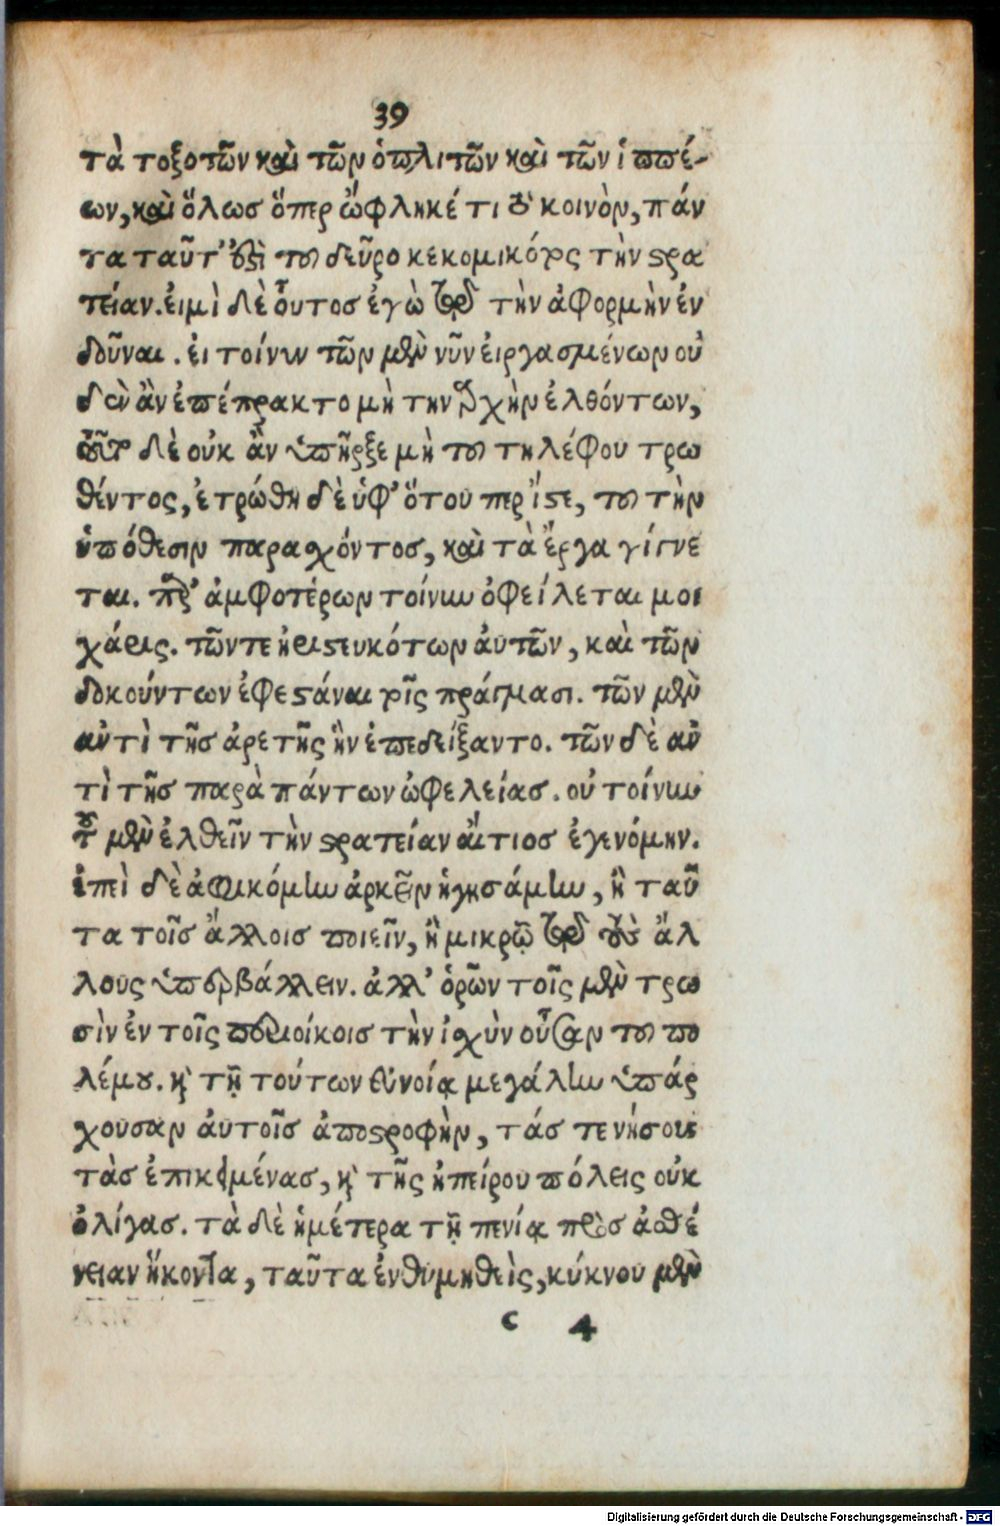 39
τὰ τοξοτῶν καὶ τῶν ὁπλιτῶν καὶ τῶν ἱππέ-
ων, καὶ ὅλωσ ὅπερ ὤφληκέ τι ȣ̃ κοινὸν, πάν
τα ταῦτ' ὀξὶ τȣ δεῦρο κεκομικότος τὴν στρα
τείαν. ἐιμὶ δὲ οὗτοσ ἐγὼ ὁ τὴν ἀφορμὴν ἐν
δοῦναι. ἐι τοίνυν τῶν μὲν νῦν ἐιργασμένων οὐ
δὲν ἂν ἐπέπρακτο μὴ την ἀρχὴν ἐλθόντων,
τοῦτο δὲ οὐκ ἂν ὑπῆρξε μὴ τοῦ τηλέφου τρω
θέντος, ἐτρώθη δὲ ὑφ' ὅτου περ ἴστε, τοῦ τὴν
ὑπόθεσιν παραχόντοσ, καὶ τὰ ἔργα γίγνε
ται. παρ' ἀμφοτέρων τοίνυν ὀφείλεται μοι
χάρις. τῶντε ἠριστευκότων ἀυτῶν, καὶ τῶν
δοκούντων ἐφεστάναι τοῖς πράγμασι. τῶν μὲν
αντὶ τῆσ ἀρετῆς ἣν ἐπεδείξαντο. τῶν δὲ αν
τὶ τῆσ παρὰ πάντων ὠφελείασ. οὐ τοίνυν
τοῦ μὲν ἐλθεῖν τὴν στρατείαν ἄιτιοσ ἐγενόμην.
ἐπὶ δὲ ἀφικόμην ἀρκεῖν ἡγησάμην, ἢ ταῦ
τα τοῖσ ἄλλοισ ποιεῖν, ἢ μικρῷ τοὺς ἄλ
λους ὑπερβάλλειν. ἀλλ' ὁρῶν τοῖς μὲν τρω
σὶν ἐν τοῖς περιοίκοισ τὴν ἰσχὺν οὖσαν τοῦ πο
λέμȣ. κὶ τῇ τούτων ἐυνοίᾳ μεγάλην ὑπάρ
χουσαν ἀυτοῖσ ἀποστροφὴν, τάσ τε νήσους
τὰσ ἐπικειμένασ, κὶ τῆς ἠπείρου πόλεις οὐκ
ὀλίγασ. τὰ δὲ ἡμέτερα τῇ πενίᾳ πρὸσ ἀσθέ
νειαν ἥκοντα, ταῦτα ἐνθυμηθεὶς, κύκνου μὲν
c 4
Digitalisierung gefördert durch die Deutsche Forschungsgemeinschaft - DFG